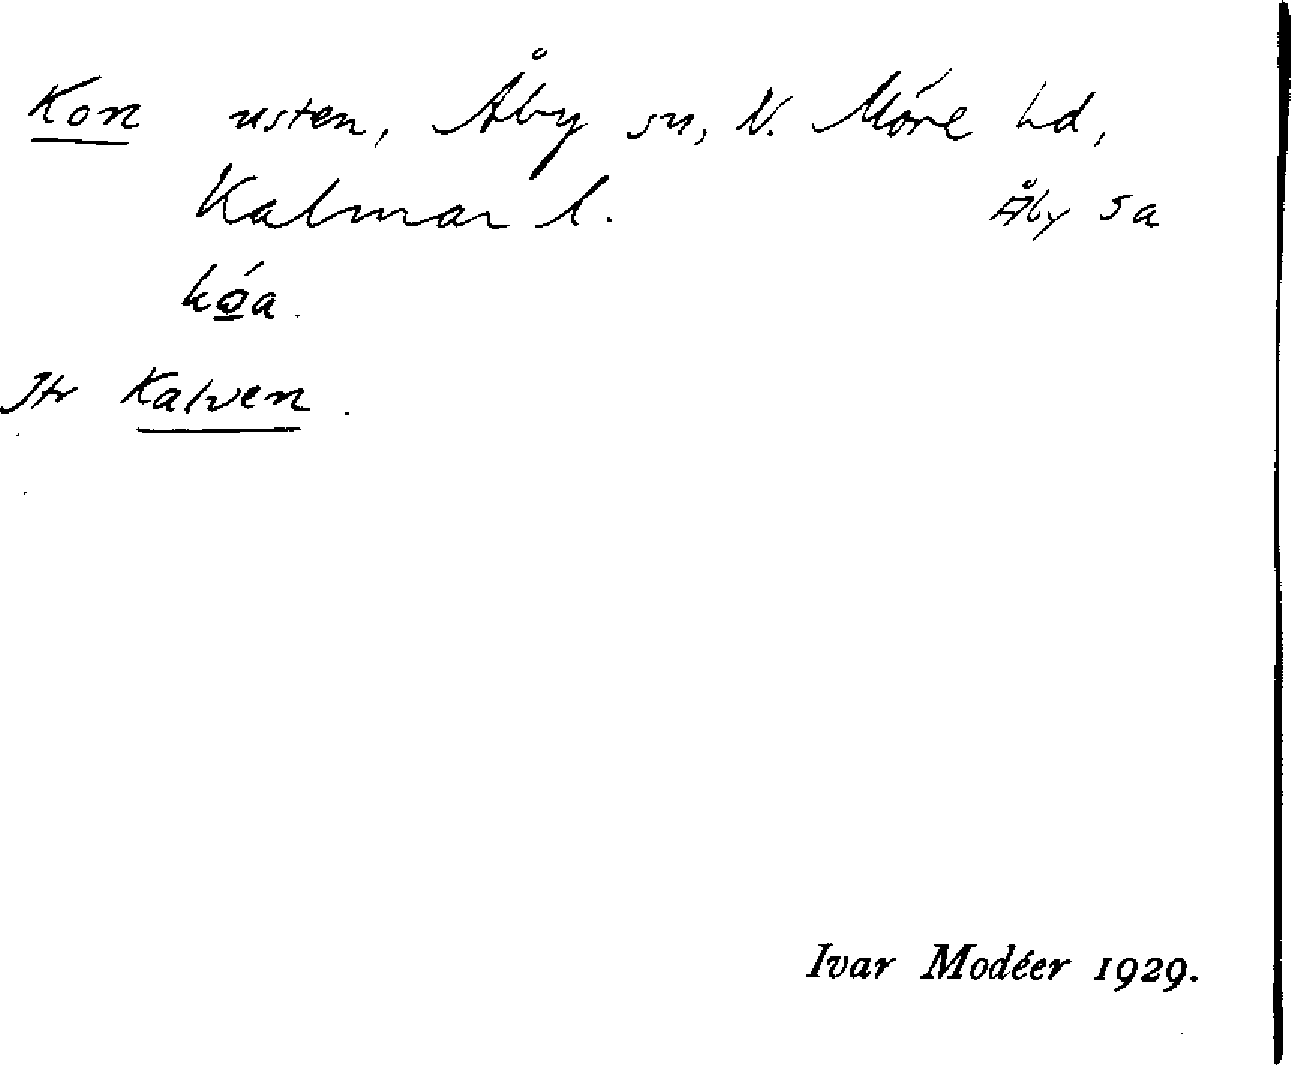 Kon usten, Åby sn, N. Möre hd,
Kalmar l. Åby sa
kǿa.
Jfr Kalven.
Ivar Modéer 1929.